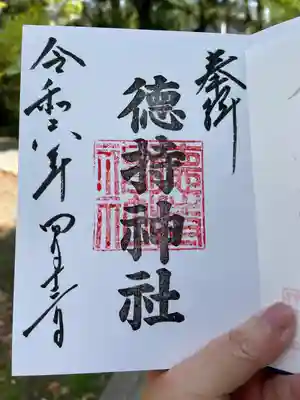 奉拝
徳持神社
令和六年四月十二日